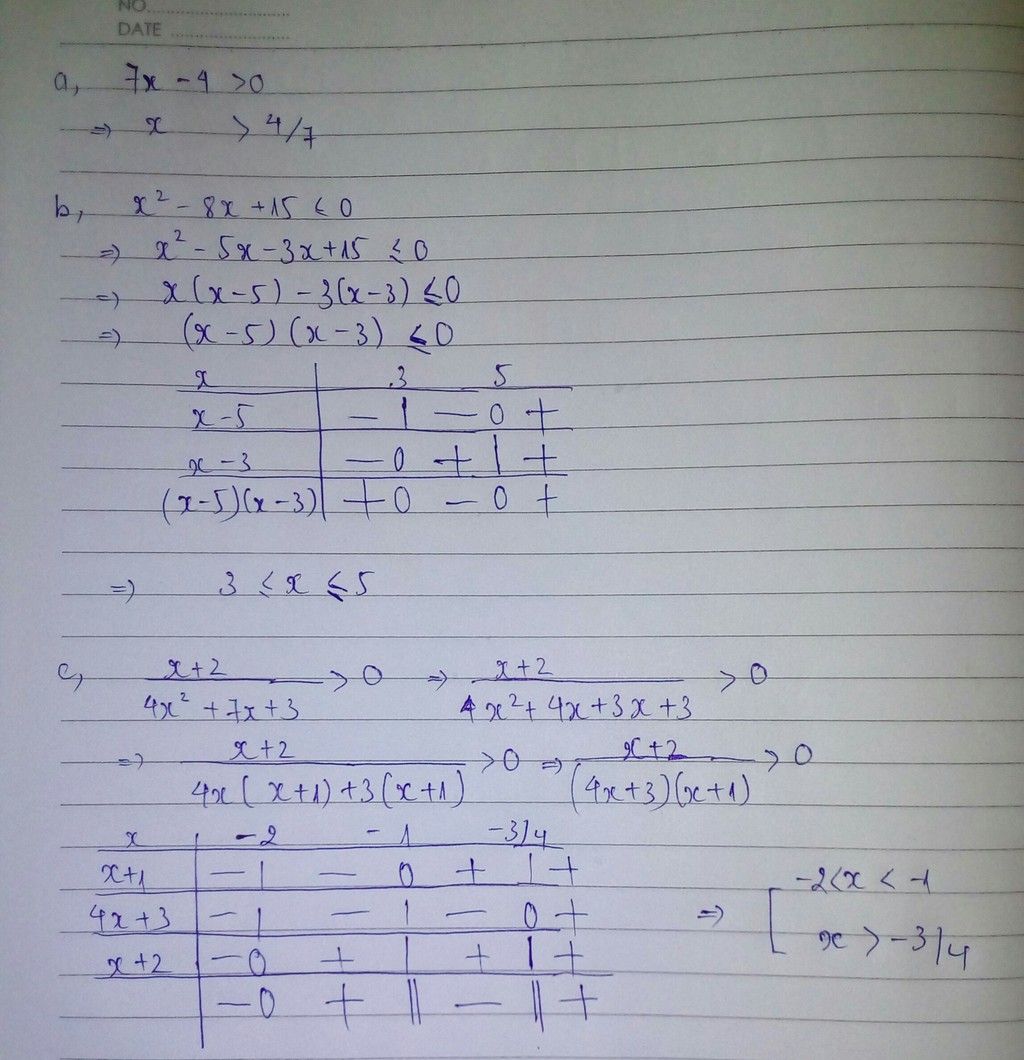 NO.
DATE
a, 7x - 4 >0
=) x > 4/7
b, x² - 8x +15 ≤ 0
=) x² - 5x - 3x + 15 ≤ 0
=) x(x-5) - 3(x-3) ≤0
=) (x-5)(x-3) ≤0
x | 3 5
x-5 | - | - 0 +
x-3 | - 0 + | +
(x-5)(x-3) | + 0 - 0 +
=) 3 ≤ x ≤ 5
c, (x+2)/(4x² + 7x + 3) > 0 =) (x+2)/(4x² + 4x + 3x + 3) > 0
=) (x+2)/(4x(x+1)+3(x+1)) >0 =) (x+2)/((4x+3)(x+1)) > 0
x | -2 -1 -3/4
x+1 | - | - 0 + | +
4x+3 | - | - | - 0 +
x+2 | - 0 + | + | +
| - 0 + || - || +
=) [ -2<x < -1
x > -3/4